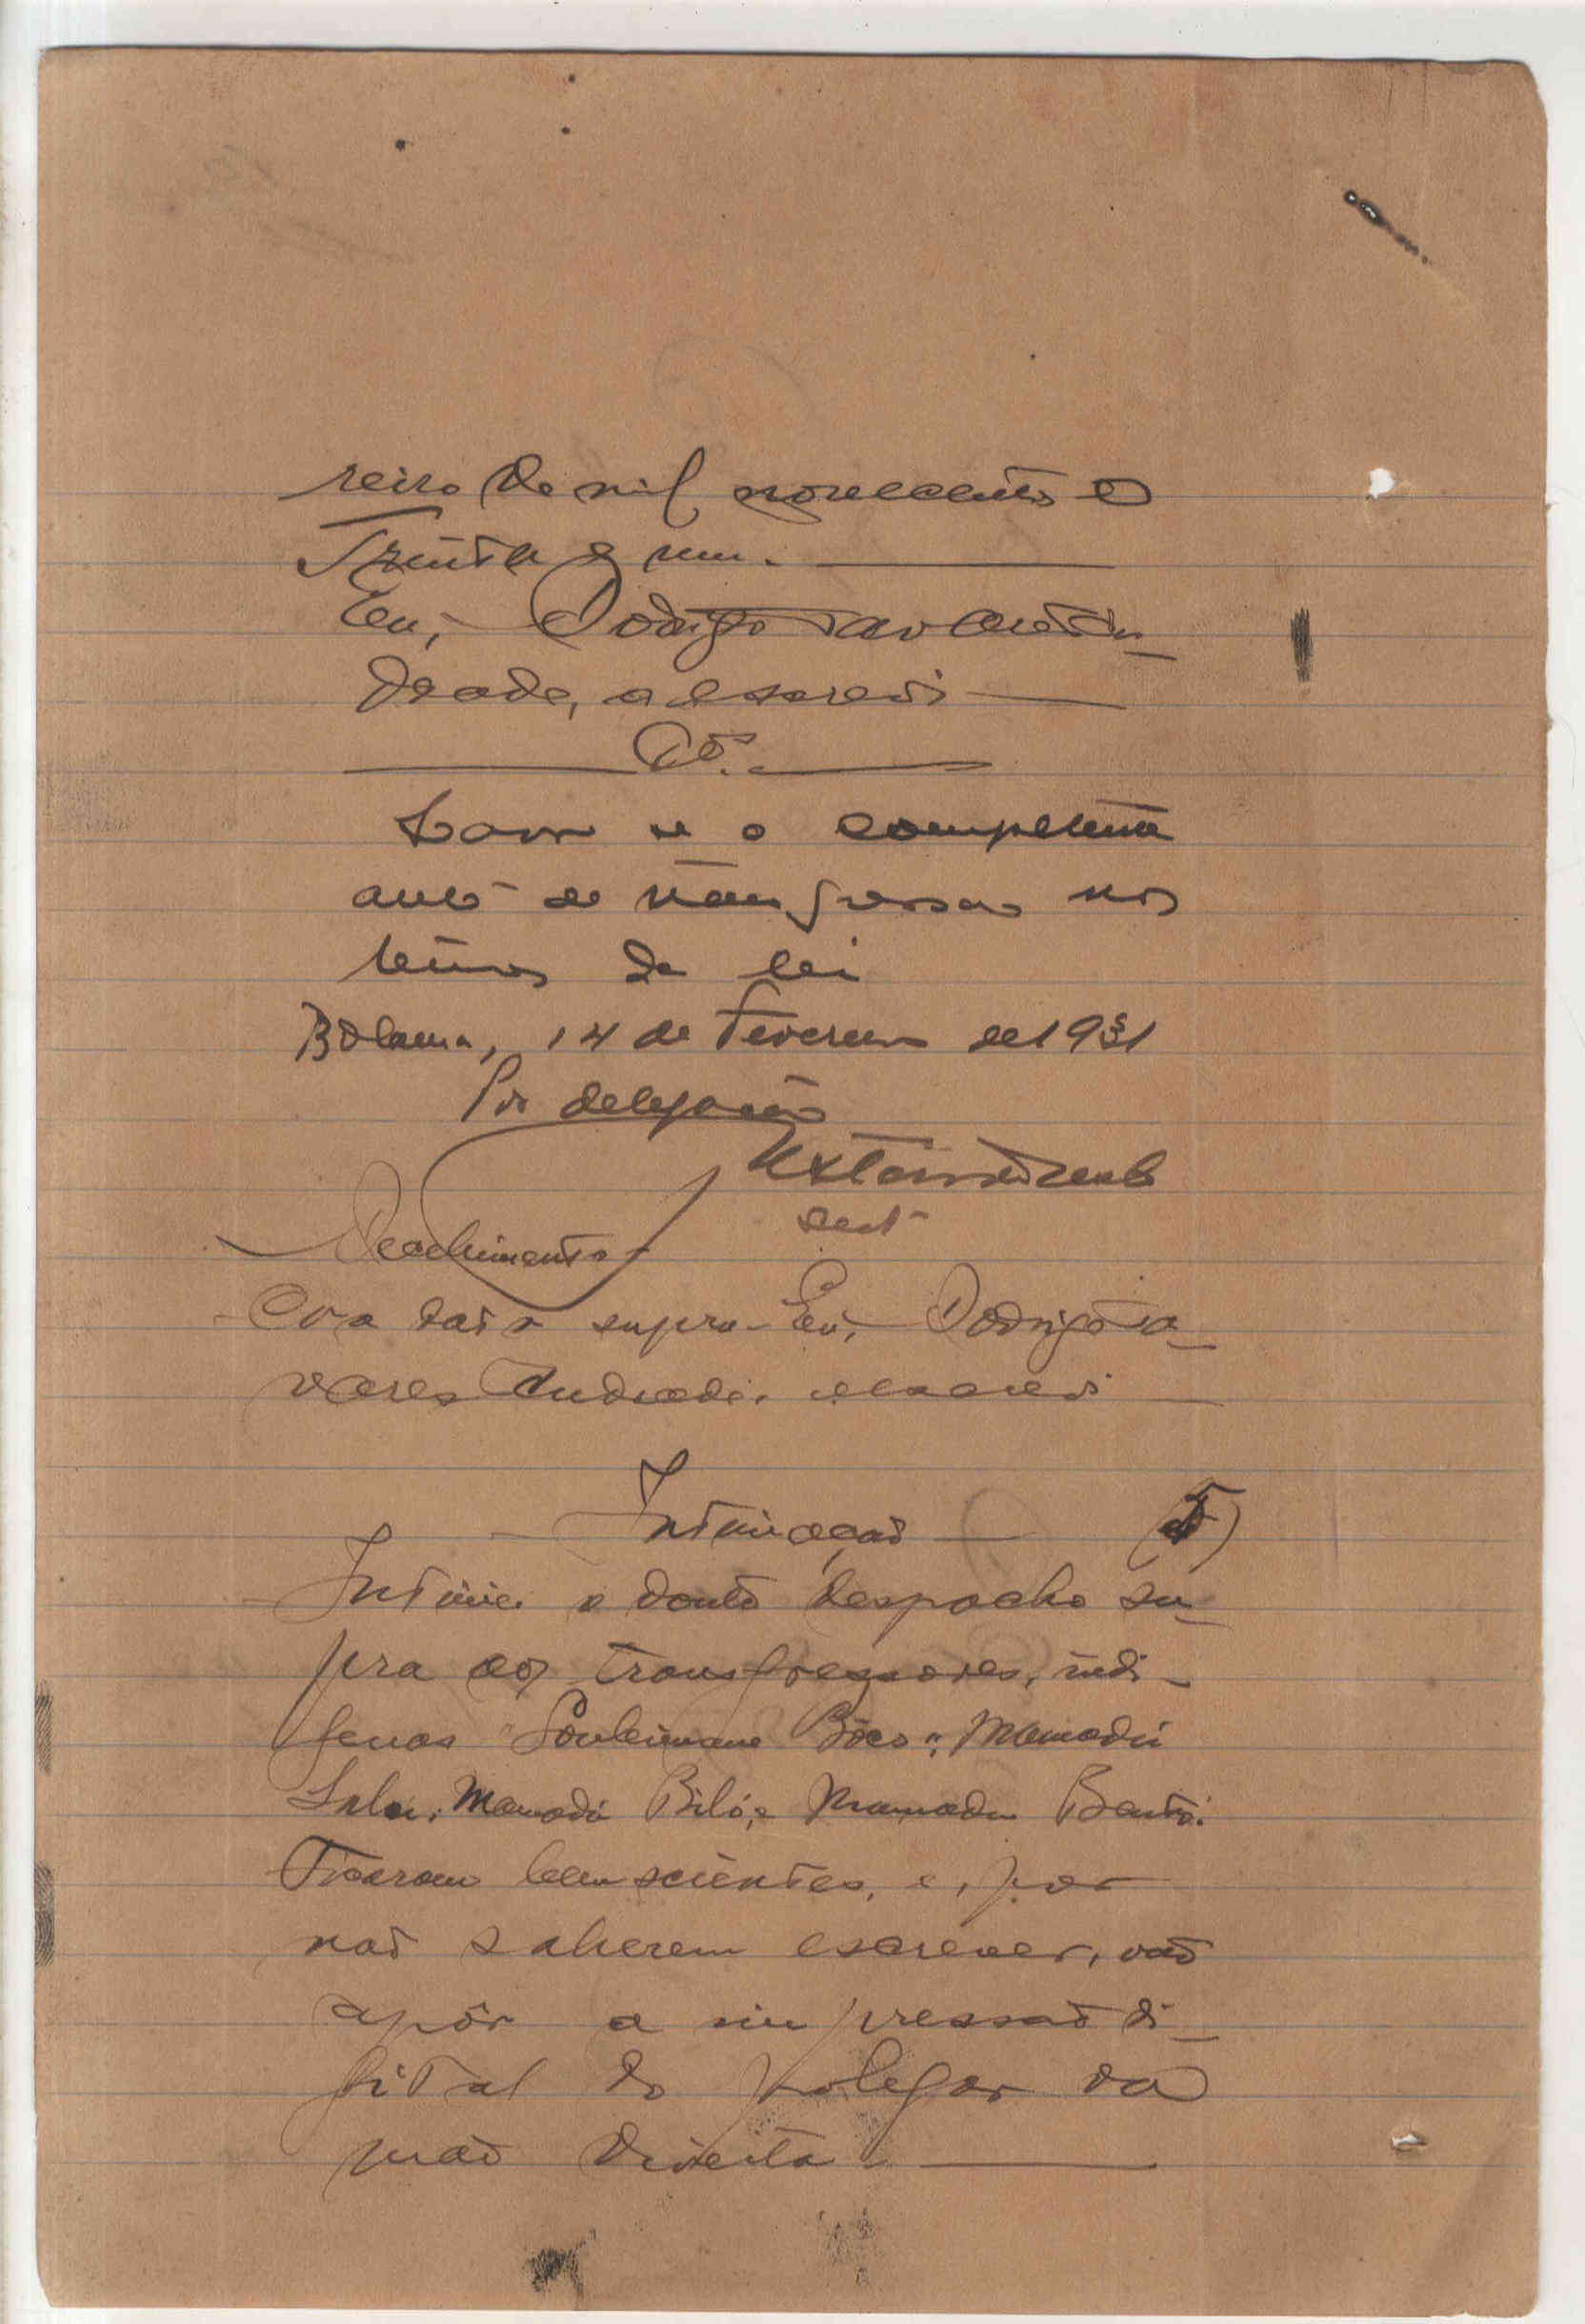 reiro de mil novecentos e
Trinta e um.
Eu, Rodrigo Tavares An-
drade, o escrevi
Lavre se o competente
auto de transgressão nos
termos da lei
Bolama, 14 de Fevereiro de 1931
Por delegação
Recebimento
Era data supra. Eu, Rodrigo Ta-
vares Andrade, o escrevi
Intimação
Intimei o douto despacho su-
pra aos transgressores, indi-
genas "Souleimane Bóco", Mamadú
Mamadú Biló, e Mamadu Bentó.
Ficaram bem scientes, e, por
não saberem escrever, vão
apôr a impressão di-
gital do polegar da
mão direita.